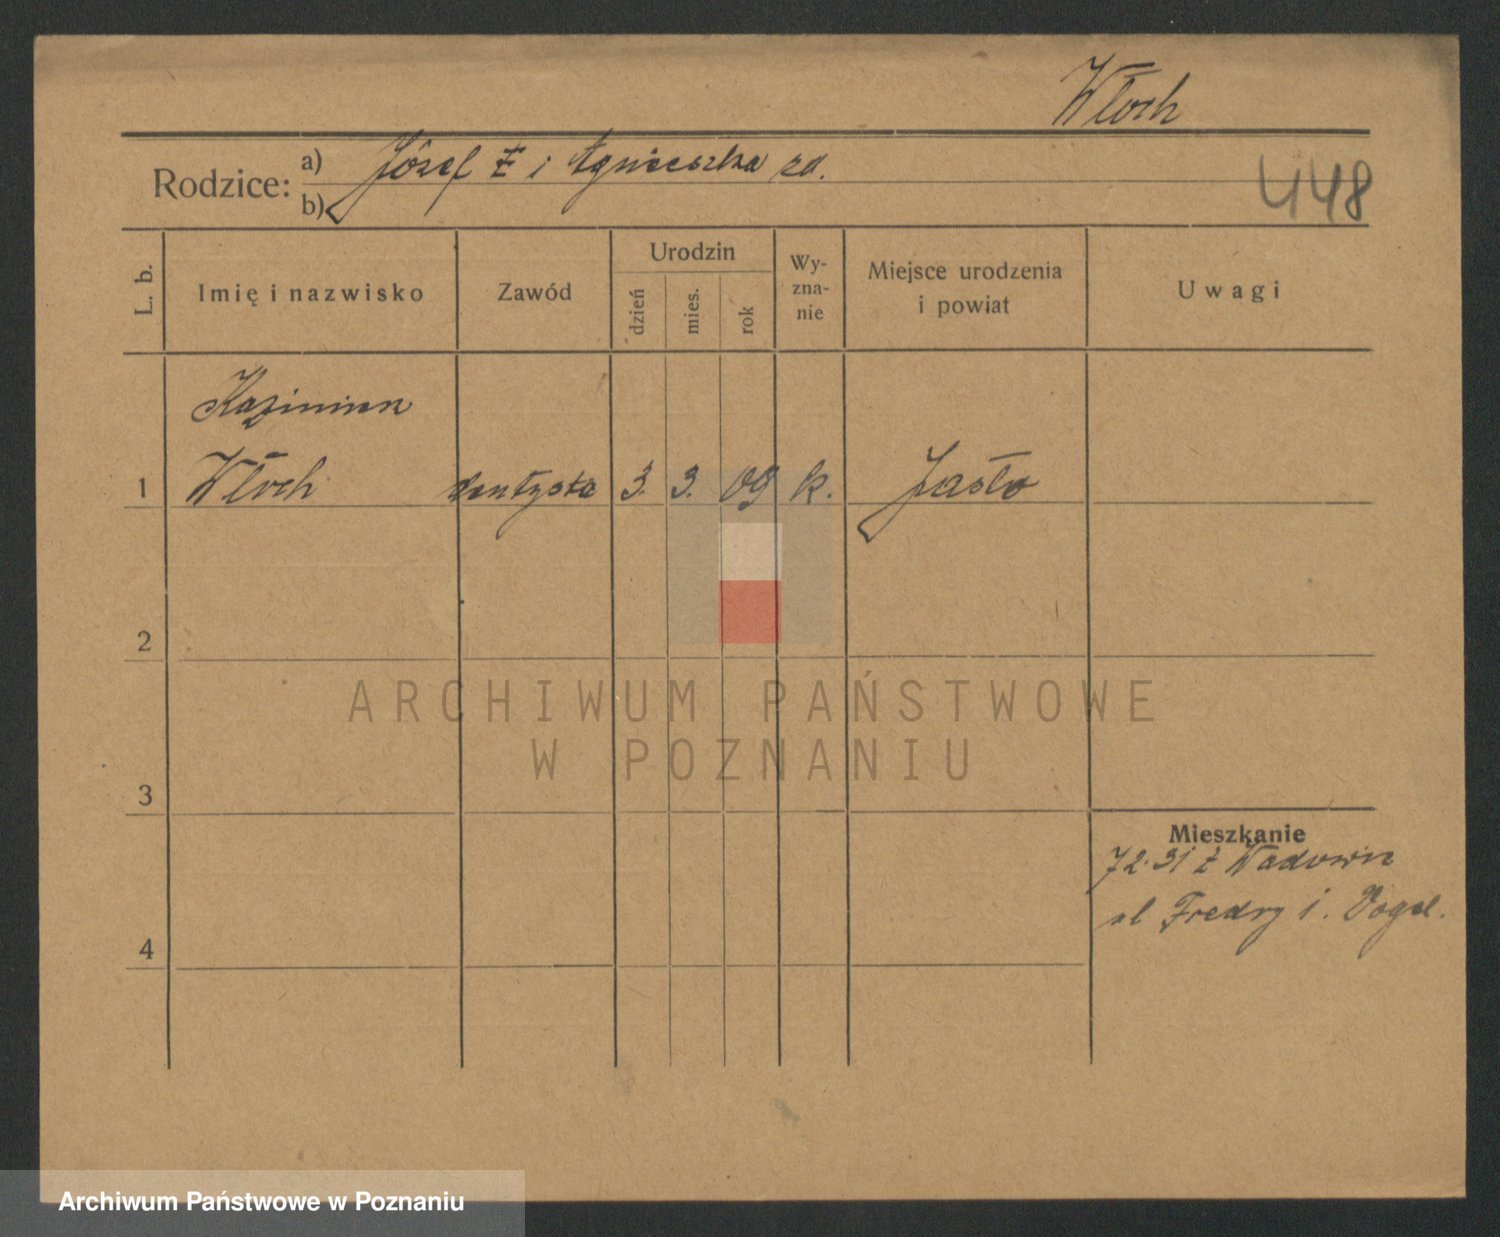 Włoch
Rodzice: a) Józef Ł i Agnieszka zd.
b)
448
L. b.
Imię i nazwisko
Zawód
Urodzin
dzień
mies.
rok
Wy-
zna-
nie
Miejsce urodzenia
i powiat
Uwagi
Kazimierz
1 Włoch dentysta 3. 3. 09 k. Jasło
2
ARCHIWUM PAŃSTWOWE
W POZNANIU
3
Mieszkanie
72.31 z Wadowic
ul Fredry i. Vogel.
4
Archiwum Państwowe w Poznaniu